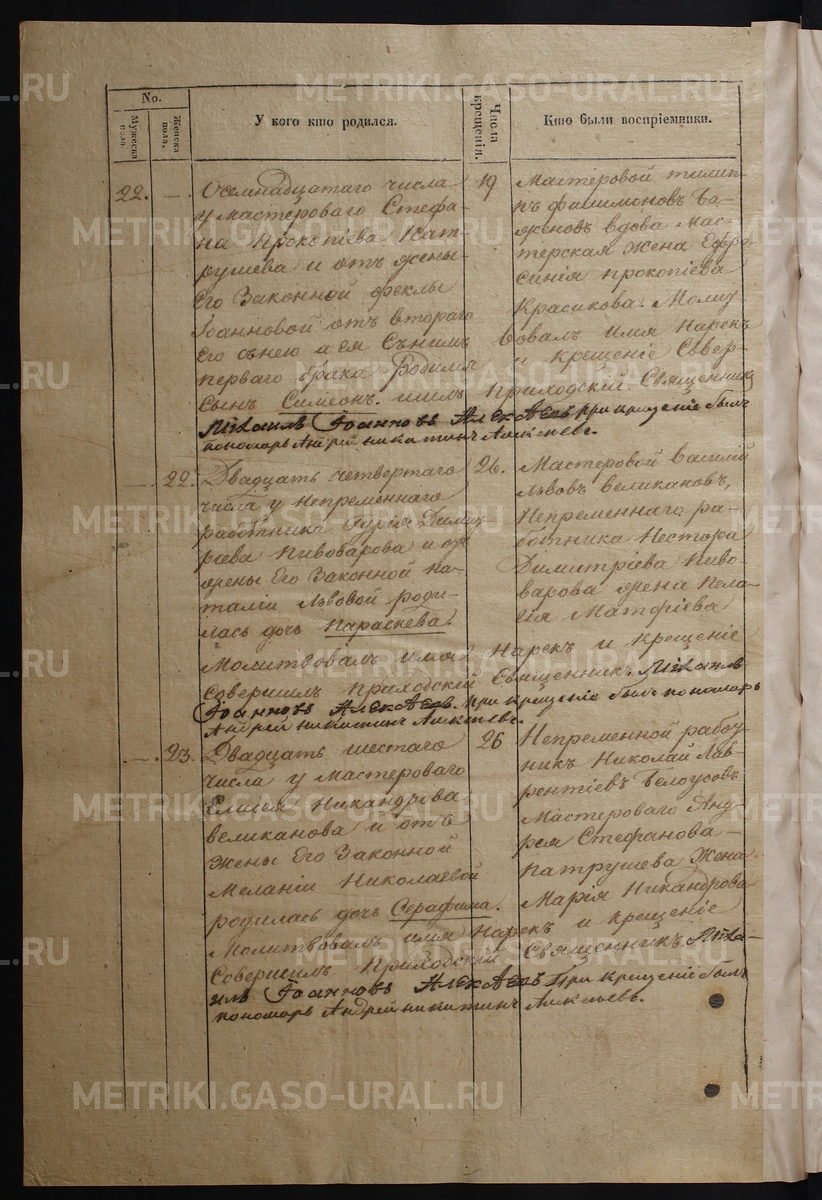 No.
Мужеска пола.
Женска пола.
У кого кто родился.
Числа крещенія.
Кто были воспріемники.
22.
Осемнадцатаго числа
у мастероваго Стефа-
на Прокопіева Пат-
рушева и отъ жены
Его Законной Феклы
Іоанновой отъ втораго
Его сънею а ея Сънимъ
перваго брака Родился
Сынъ Симеонъ.
19
Мастеровой Филип-
пъ Филимоновъ Ба-
женовъ вдова Мас-
терская жена Ефро-
синія Прокопіева
Красикова. Молит-
вовалъ имя Нарекъ
и крещеніе Совер-
шилъ Приходскій Священникъ
Михаилъ Іоанновъ Алексѣевъ при крещеніе былъ
пономарь Андрей Никитинъ
22.
Двадцать четвертаго
числа у Непременнаго
работника Гурія Димит-
ріева Пивоварова и отъ
жены Его Законной На-
таліи Львовой роди-
лась дочь Параскева.
26.
Мастеровой Василій
Львовъ Великановъ,
Непременнаго ра-
ботника Нестора
Димитріева Пиво-
варова жена Пела-
гія Матфіева
Молитвовалъ имя Нарекъ и Крещеніе
Совершилъ Приходскій Священникъ Михаилъ
Іоанновъ Алексѣевъ. При крещеніе былъ пономарь
Андрей Никитинъ
23.
Двадцать шестаго
числа у Мастероваго
Елисея Никандрова
Великанова и отъ
жены Его Законной
Меланіи Николаевой
родилась дочь Серафима.
26
Непременной работ-
никъ Николай Лав-
рентіевъ Белоусовъ
Мастероваго Анд-
рея Стефанова
Патрушева Жена
Марія Никандрова
Молитвовалъ имя Нарекъ и крещеніе
Совершилъ Приходскій Священникъ Миха-
илъ Іоанновъ Алексѣевъ При крещеніе былъ
пономарь Андрей Никитинъ
METRIKI.GASO-URAL.RU